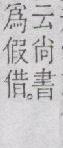 云尙書
爲假借。